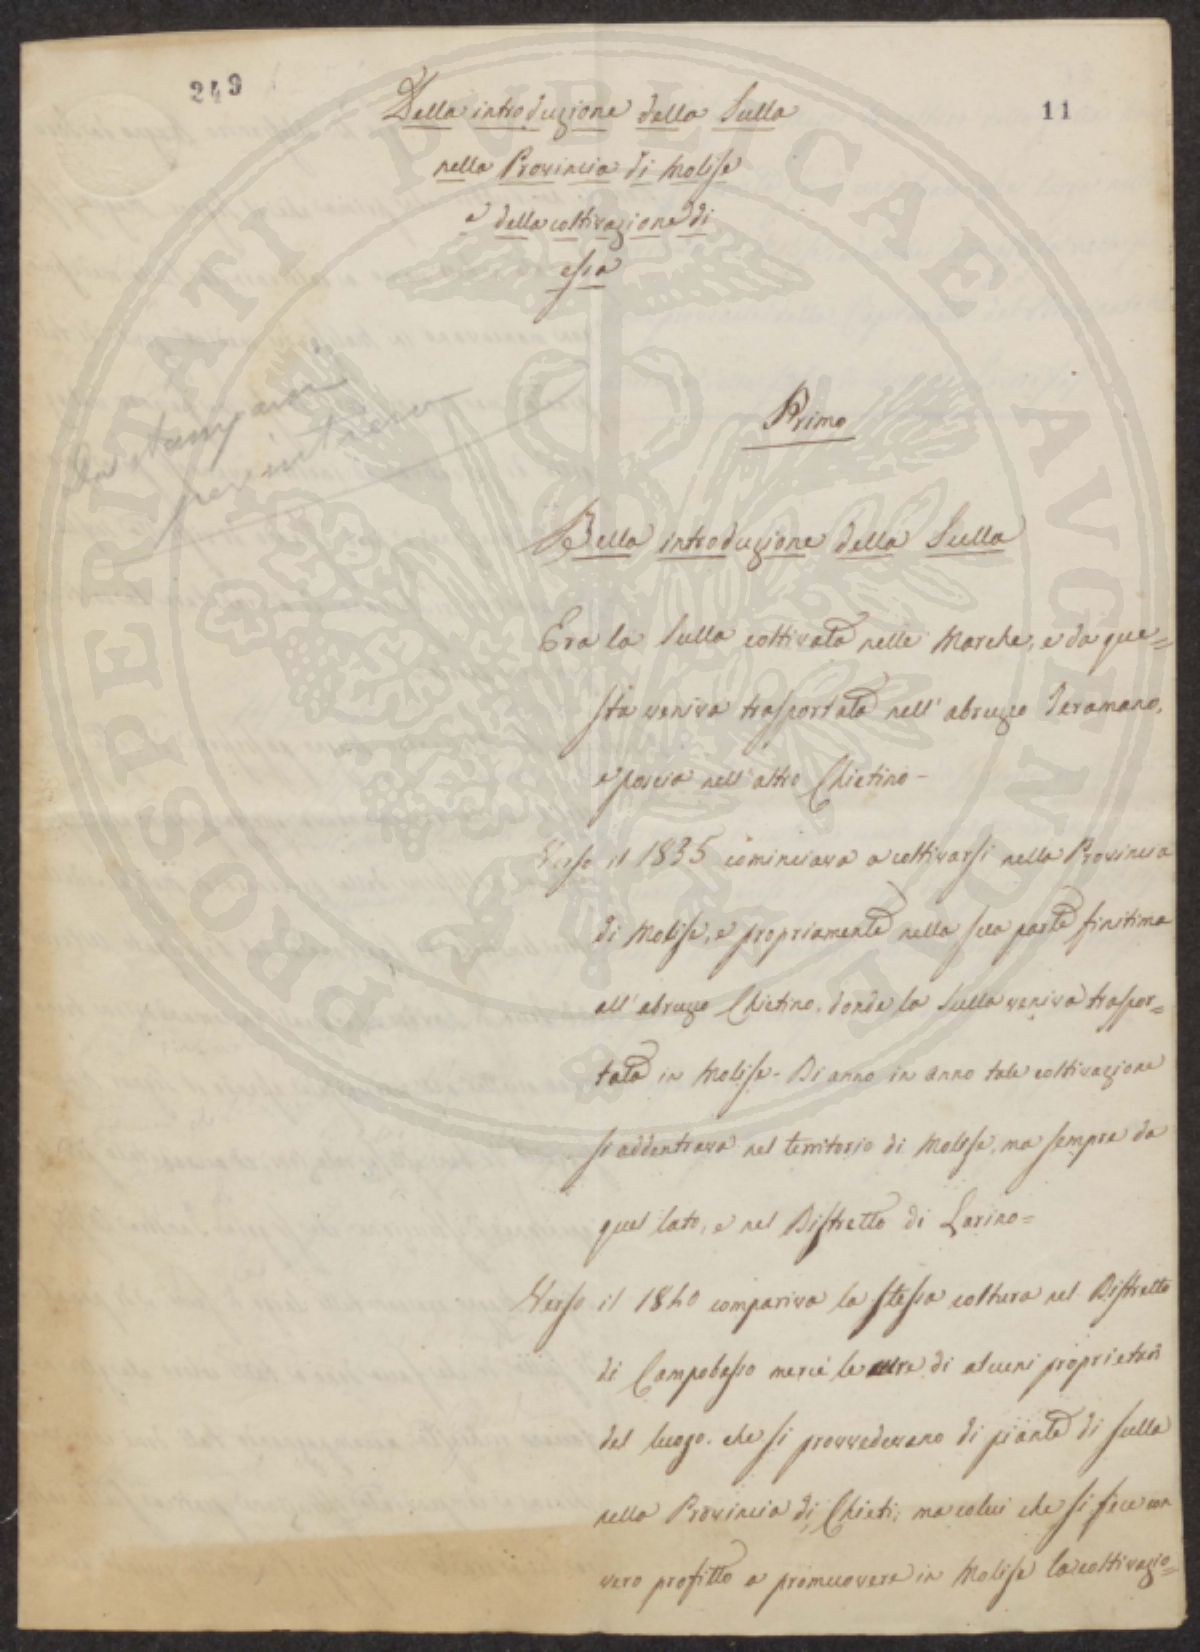 249
11
Della introduzione della Sulla
nella Provincia di Molise
e della coltivazione di
essa
Da stamparsi
per intiero
Primo
Della introduzione della Sulla
Era la Sulla coltivata nelle Marche, e da que=
sta veniva trasportata nell' abruzzo Teramano,
e poscia nell' altro Chietino-
Verso il 1835 cominciava a coltivarsi nella Provincia
di Molise, e propriamente nella sua parte finitima
all' abruzzo Chietino, donde la Sulla veniva traspor=
tata in Molise- Di anno in anno tale coltivazione
si addentrava nel territorio di Molise, ma sempre da
quel lato, e nel Distretto di Larino=
Verso il 1840 compariva la stessa coltura nel Distretto
di Campobasso mercè le cure di alcuni proprietarii
del luogo. che si provvedevano di piante di sulla
nella Provincia di Chieti; ma colui che si fece con
vero profitto a promuovere in Molise la coltivazio=
PROSPERITATI PUBLICAE AVGENDAE